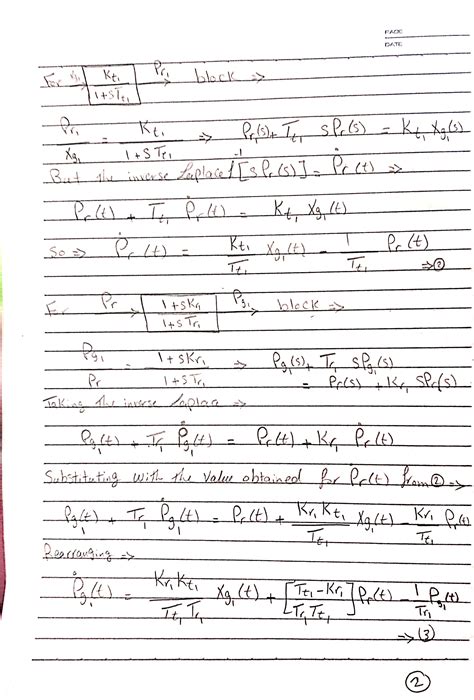 PAGE
DATE
For Xg₁ → [Kt₁ / (1+sTt₁)] → Pr₁ block ⇒
Pr₁ / Xg₁ = Kt₁ / (1+sTt₁) ⇒ Pr(s) + Tt₁ sPr(s) = Kt₁ Xg₁(s)
But the inverse Laplace ℓ⁻¹[sPr(s)] = Ṗr(t) ⇒
Pr(t) + Tt₁ Ṗr(t) = Kt₁ Xg₁(t)
So ⇒ Ṗr(t) = Kt₁/Tt₁ Xg₁(t) − 1/Tt₁ Pr(t)
⇒②
For Pr → [(1+sKr₁) / (1+sTr₁)] → Pg₁ block ⇒
Pg₁ / Pr = (1+sKr₁) / (1+sTr₁) ⇒ Pg₁(s) + Tr₁ sPg₁(s)
= Pr(s) + Kr₁ sPr(s)
Taking the inverse Laplace ⇒
Pg₁(t) + Tr₁ Ṗg₁(t) = Pr(t) + Kr₁ Ṗr(t)
Substituting with the value obtained for Pr(t) from ② ⇒
Pg₁(t) + Tr₁ Ṗg₁(t) = Pr(t) + Kr₁Kt₁/Tt₁ Xg₁(t) − Kr₁/Tt₁ Pr(t)
Rearranging ⇒
Ṗg₁(t) = Kr₁Kt₁/(Tt₁Tr₁) Xg₁(t) + [(Tt₁−Kr₁)/(Tr₁Tt₁)] Pr(t) − 1/Tr₁ Pg₁(t)
⇒ (3)
②